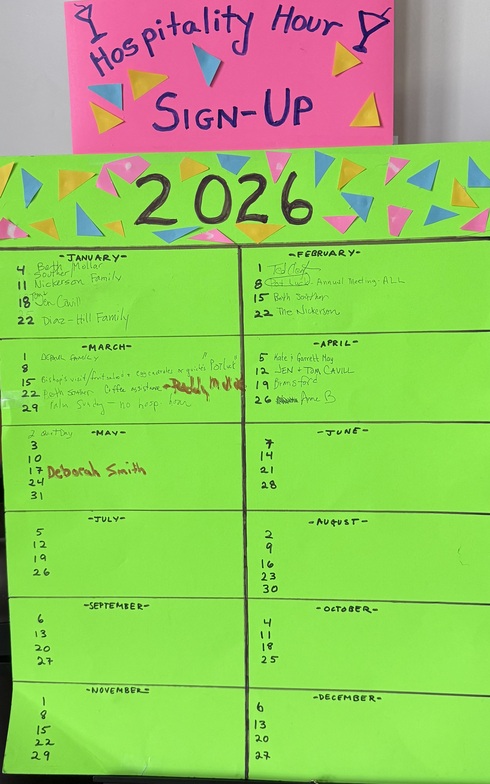 Hospitality Hour
SIGN-UP
2026
-JANUARY-
4 Beth Mollar
Southerl
11 Nickerson Family
18 Jen Cavill
22 Diaz-Hill Family
-FEBRUARY-
1
8 Pot Luck Annual Meeting: ALL
15 Beth
22 The Nickerson
-MARCH-
1 FAMILY
8
15 Bishop's visit/ "Potluck"
22 Beth Coffee assistance
29 Palm Sunday - no hosp. hour
-APRIL-
5 Kate + Garrett May
12 JEN + TOM CAVILL
19
26 Ame B
-MAY-
3
10
17 Deborah Smith
24
31
-JUNE-
7
14
21
28
-JULY-
5
12
19
26
-AUGUST-
2
9
16
23
30
-SEPTEMBER-
6
13
20
27
-OCTOBER-
4
11
18
25
-NOVEMBER-
1
8
15
22
29
-DECEMBER-
6
13
20
27